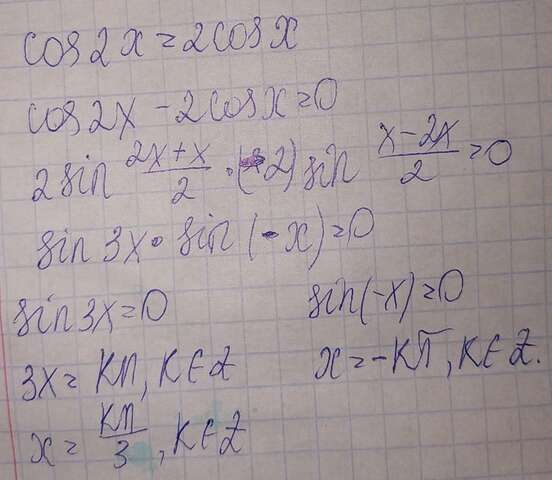 cos2x=2cosx
cos2x-2cosx=0
2sin (2x+x)/2 · (-2)sin (x-2x)/2 =0
sin3x·sin(-x)=0
sin3x=0 sin(-x)=0
3x=Kπ, K∈Z x=-Kπ, K∈Z.
x=Kπ/3, K∈Z